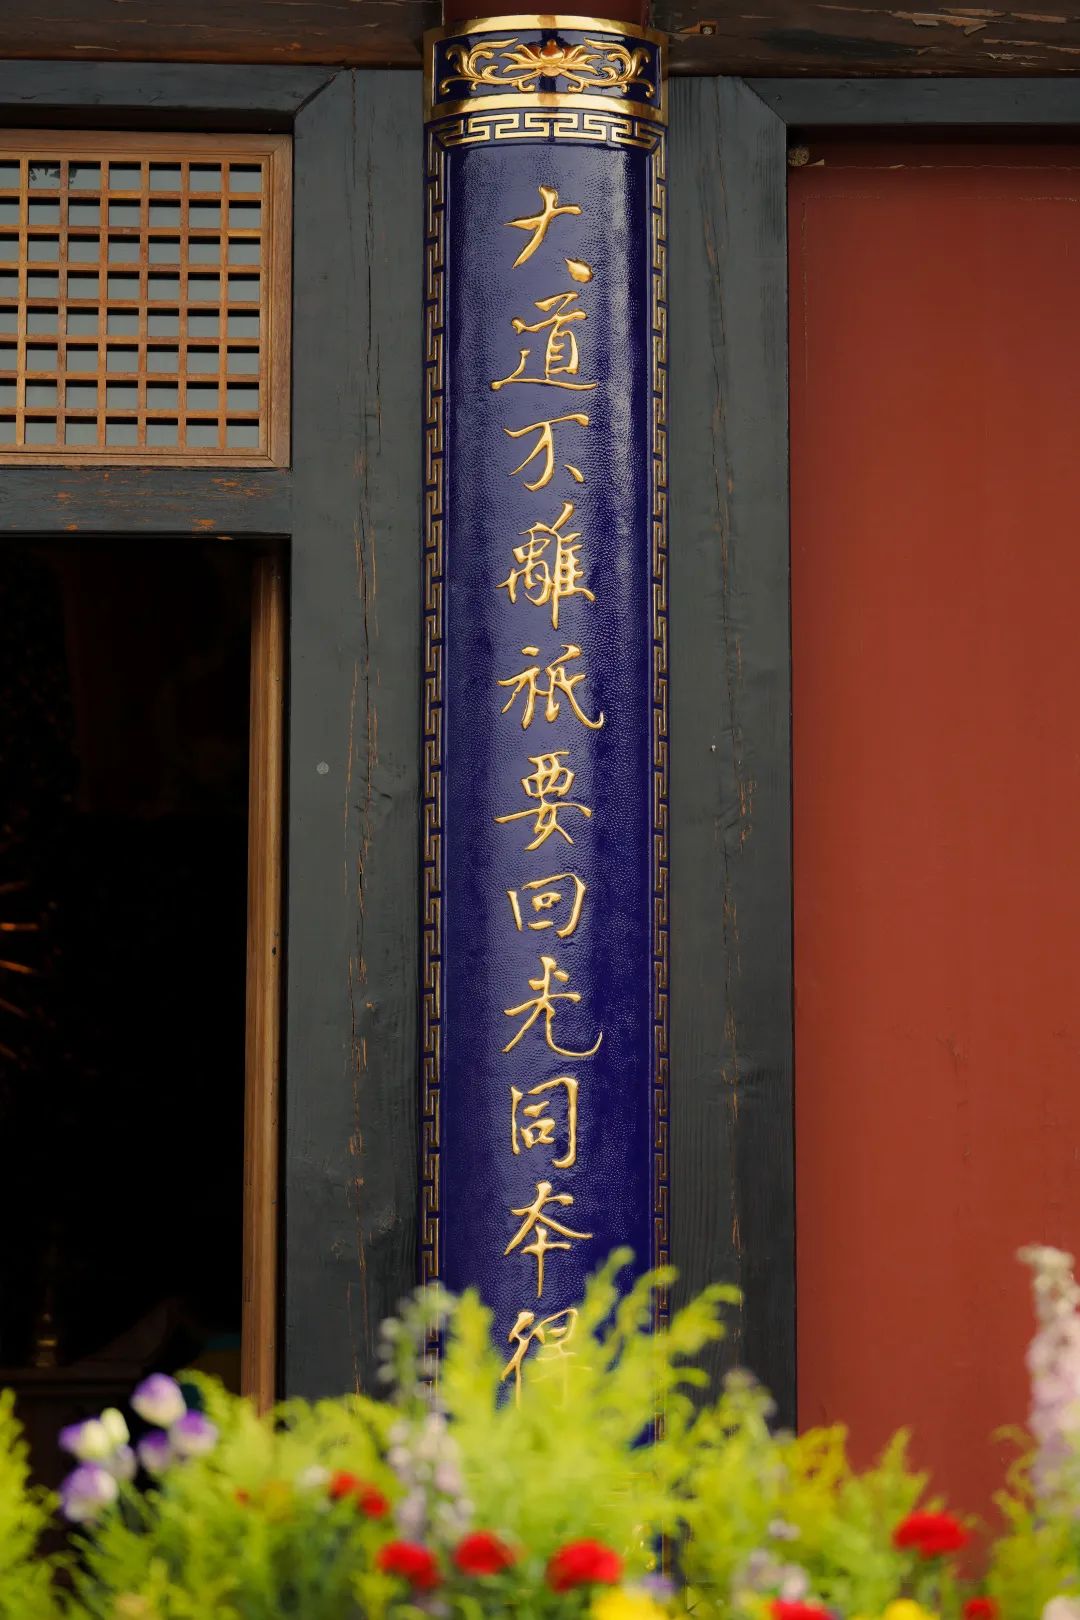 大道不離祇要回光同本得